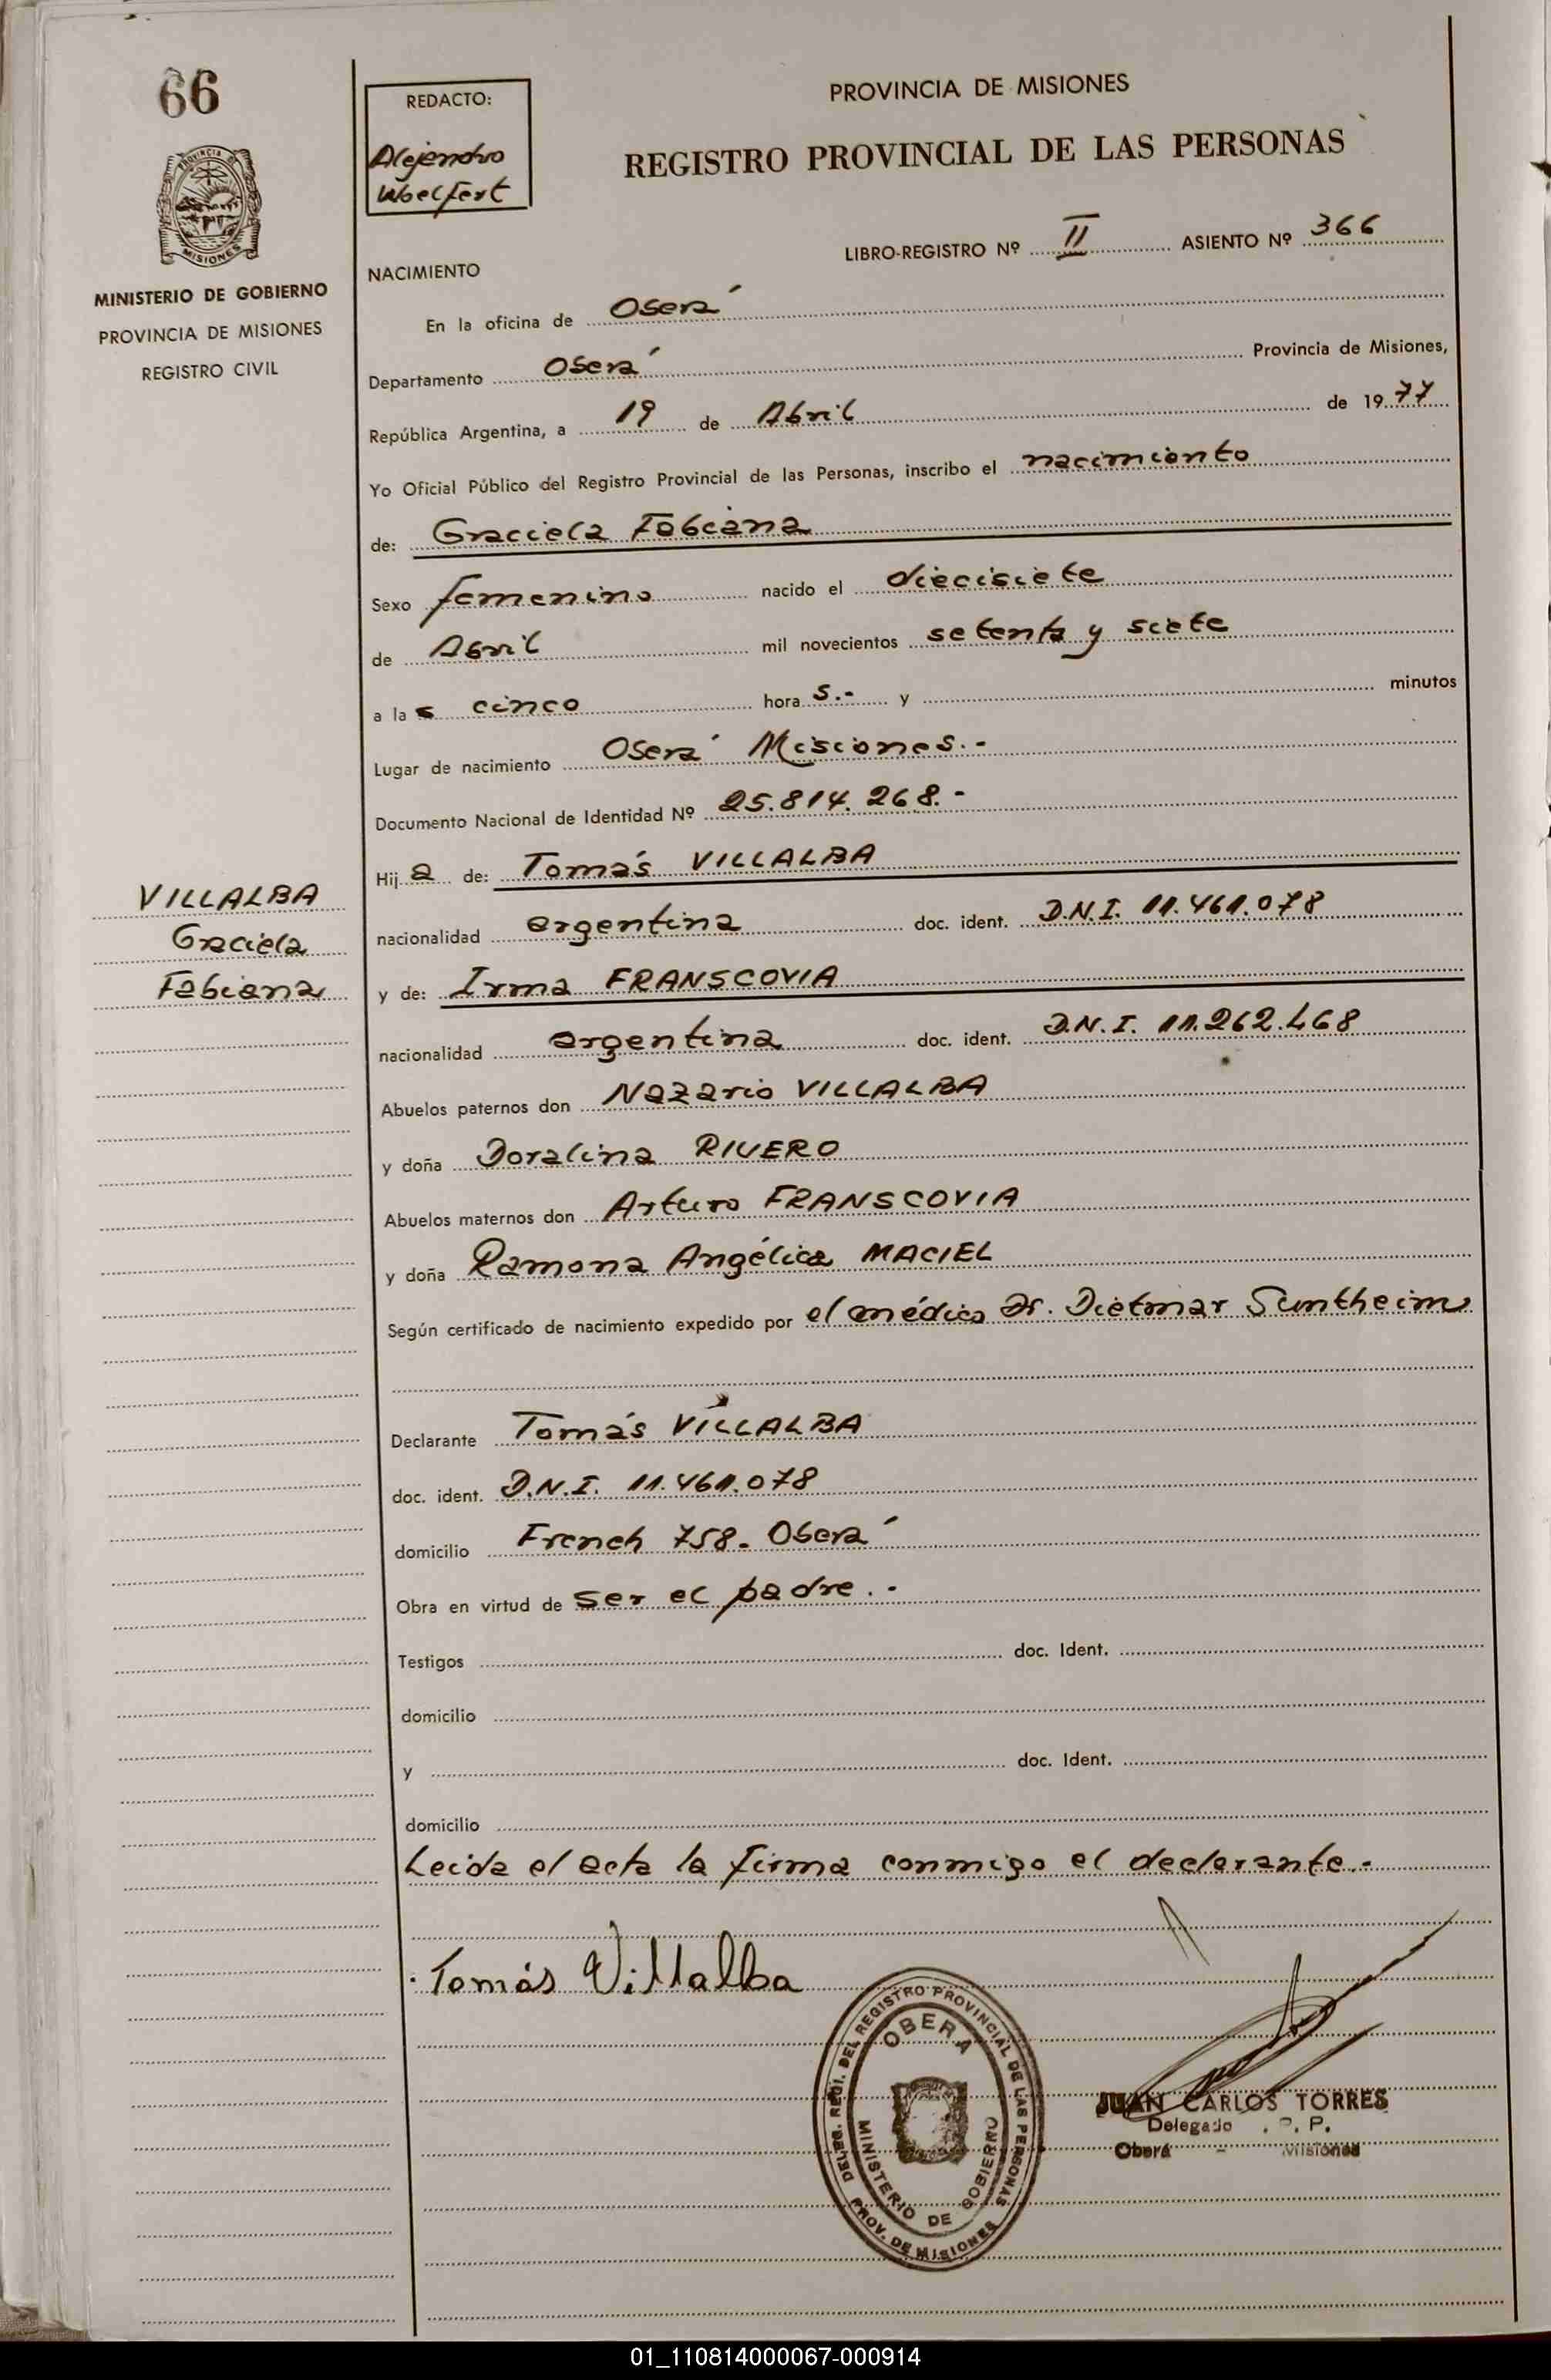 66
REDACTO:
Alejandro
Woelfert
PROVINCIA DE MISIONES
REGISTRO PROVINCIAL DE LAS PERSONAS
PROVINCIA DE
MISIONES
MINISTERIO DE GOBIERNO
PROVINCIA DE MISIONES
REGISTRO CIVIL
LIBRO-REGISTRO Nº II ASIENTO Nº 366
NACIMIENTO
En la oficina de Oberá
Departamento Oberá Provincia de Misiones,
República Argentina, a 19 de Abril de 1977
Yo Oficial Público del Registro Provincial de las Personas, inscribo el nacimiento
de: Graciela Fabiana
Sexo femenino nacido el diecisiete
de Abril mil novecientos setenta y siete
a las cinco hora s.- y minutos
Lugar de nacimiento Oberá Misiones.-
Documento Nacional de Identidad Nº 25.814.268.-
Hija de: Tomás VILLALBA
nacionalidad argentina doc. ident. D.N.I. 11.461.078
y de: Irma FRANSCOVIA
nacionalidad argentina doc. ident. D.N.I. 11.262.468
VILLALBA
Graciela
Fabiana
Abuelos paternos don Nazario VILLALBA
y doña Doralina RIVERO
Abuelos maternos don Arturo FRANSCOVIA
y doña Ramona Angélica MACIEL
Según certificado de nacimiento expedido por el médico Dr. Dietmar Suntheim
Declarante Tomás VILLALBA
doc. ident. D.N.I. 11.461.078
domicilio French 758. Oberá
Obra en virtud de ser el padre.-
Testigos doc. Ident.
domicilio
y doc. Ident.
domicilio
Leída el acta la firma conmigo el declarante.-
Tomás Villalba
DELEG. REGI. DEL REGISTRO PROVINCIAL DE LAS PERSONAS
OBERA
MINISTERIO DE GOBIERNO
PROV. DE MISIONES
JUAN CARLOS TORRES
Delegado . P. P.
Oberá - Misiones
01_110814000067-000914